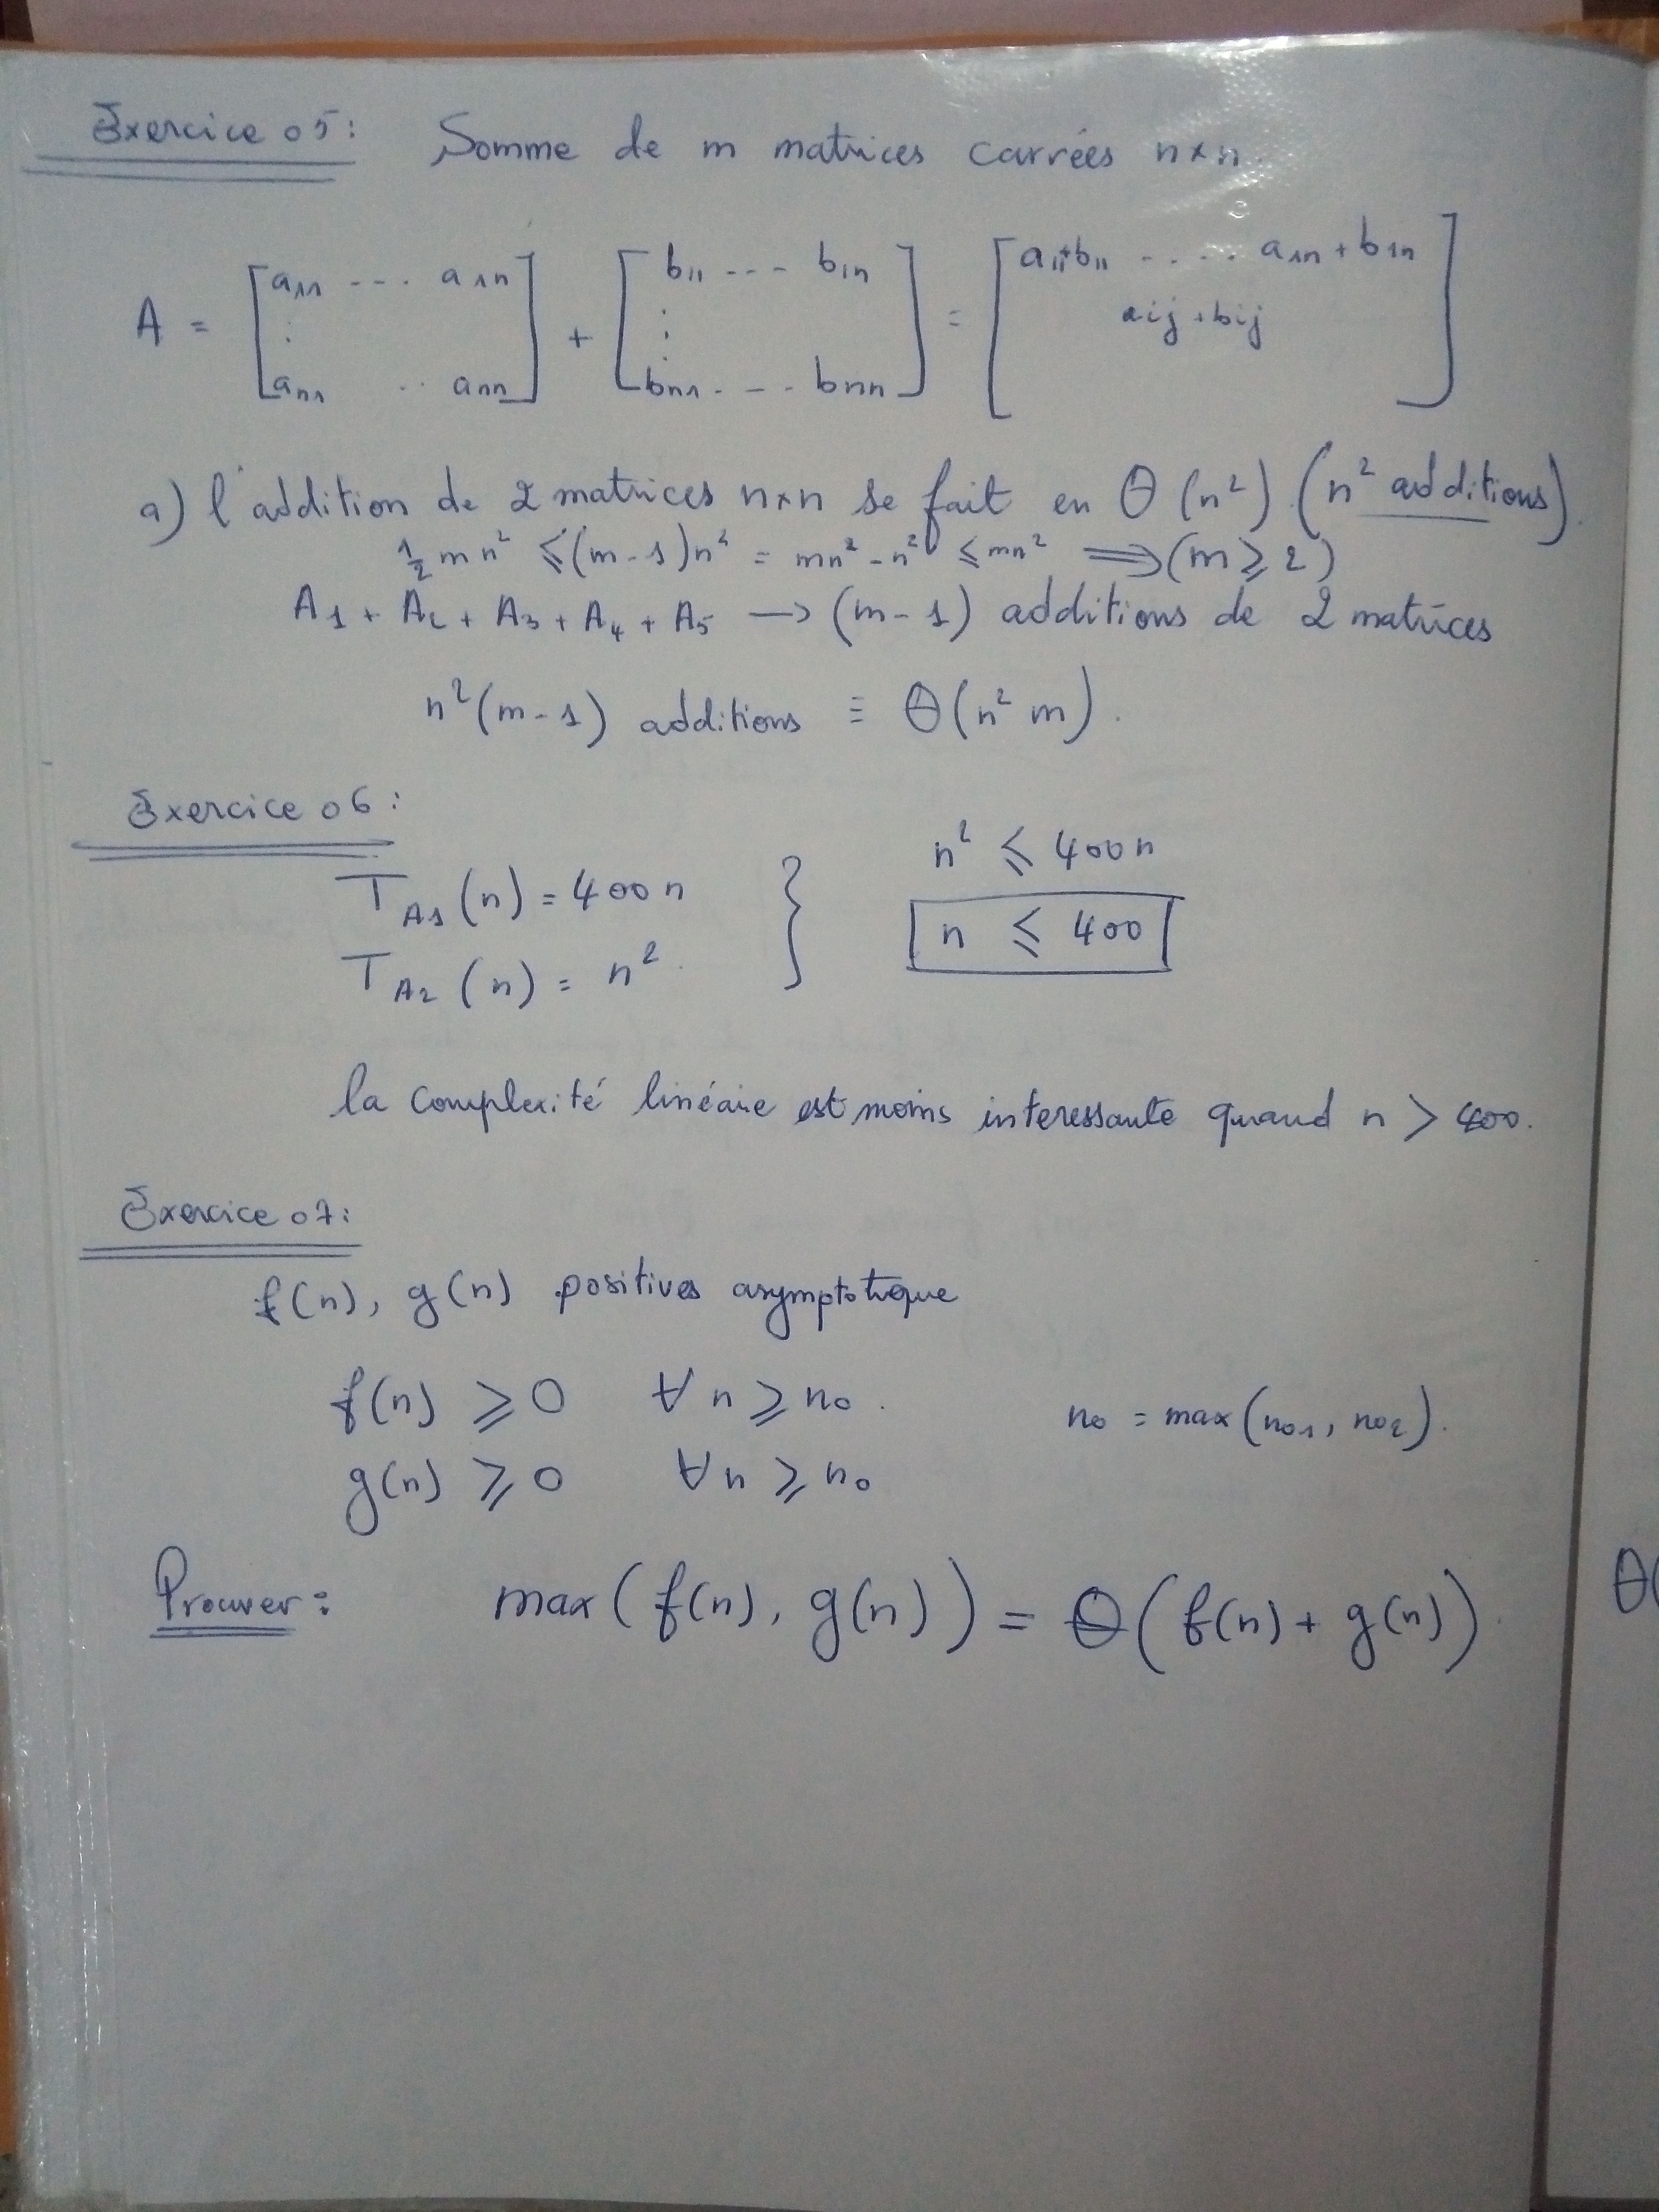 Exercice 05: Somme de m matrices carrées n×n.
A = [a11 --- a1n] + [b11 --- b1n] = [a11+b11 ..... a1n + b1n]
⋮ ⋮ aij + bij
an1 .. ann bn1 - -- bnn
a) l'addition de 2 matrices n×n se fait en Θ(n²) (n² additions).
1/2 mn² ≤ (m-1)n² = mn² - n² ≤ mn² ⟹ (m ≥ 2)
A1 + A2 + A3 + A4 + A5 → (m-1) additions de 2 matrices
n²(m-1) additions ≡ Θ(n² m).
Exercice 06:
TA1(n) = 400n } n² ≤ 400n
TA2(n) = n². n ≤ 400
la complexité linéaire est moins interessante quand n > 400.
Exercice 07:
f(n), g(n) positives asymptotique
f(n) ≥ 0 ∀n ≥ n0. n0 = max(n01, n02).
g(n) ≥ 0 ∀n ≥ n0
Prouver: max(f(n), g(n)) = Θ(f(n) + g(n)).
Θ(